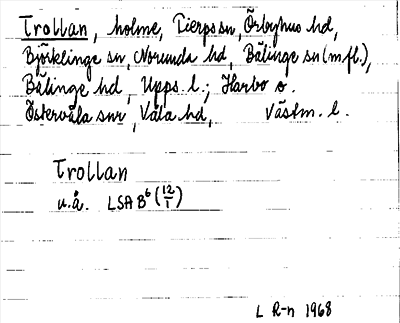 Trollan, holme, Tierps sn, Örbyhus hd,
Björklinge sn, Norunda hd, Bälinge sn (m fl.),
Bälinge hd, Upps. l.; Harbo o.
Östervåla snr, Våla hd, Västm. l.
Trollan
u.å. LSA B⁶ (12/1)
L R-n 1968